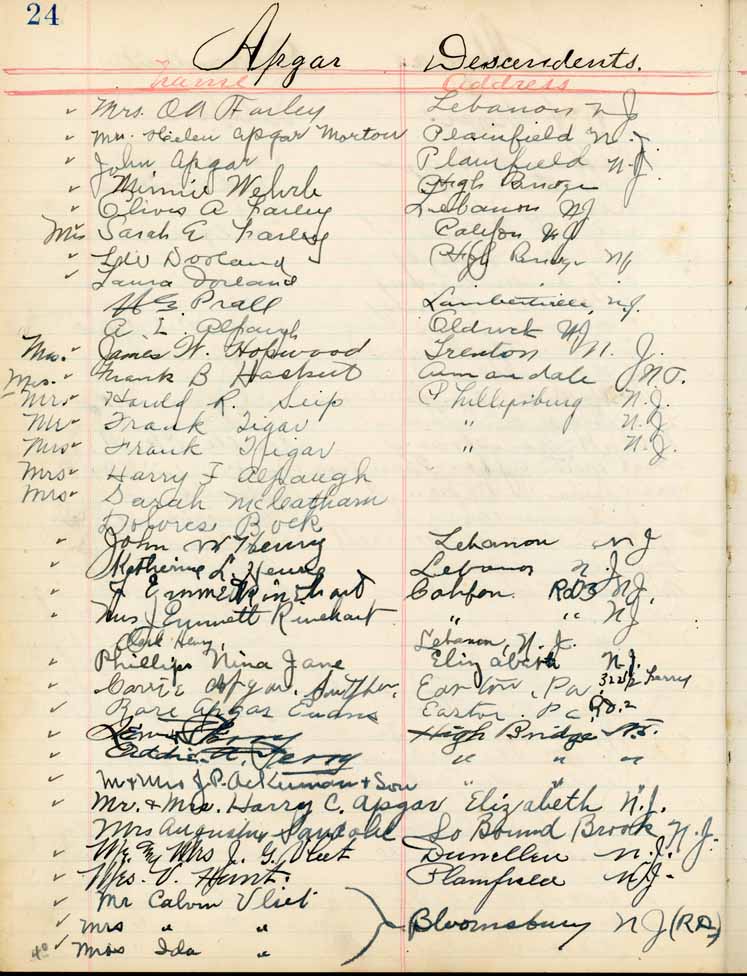 24
Apgar Descendents.
name address
Mrs. O A Farley Lebanon N J
Mrs. Helen Apgar Morton Plainfield N. J.
John Apgar Plainfield N. J.
Minnie Wehrle High Bridge
Olivis A Farley Lebanon NJ
Mrs Sarah E Farley Califon NJ
Dorland High Bridge NJ
Laura Dorland
Prall Lambertville, N.J.
A. L. Alpaugh NJ
Mrs. James W. Hopwood Trenton N. J.
Mrs. Frank B Annandale N.J.
Mrs Harold R. Seip Phillipsburg N.J.
Mr Frank Tigar " N.J.
Mrs Frank Tigar " N.J.
Mrs Harry F Alpaugh
Mrs Sarah
Dolores Bock
John W Henry Lebanon N J
Katherine L. Henry Lebanon N. J
J Emmett Rinehart Califon RD3 NJ.
Mrs J Emmett Rinehart " " NJ
Henry Lebanon, N. J.
Phillips Nina Jane Elizabeth N.J.
Carrie Apgar Easton, Pa. 322½ Ferry
Apgar Evans Easton, Pa RD.2
High Bridge N.J.
Addie A. " " "
Mr + Mrs J. P. Ackerman + Son " "
Mr. + Mrs. Harry C. Apgar Elizabeth N.J.
Mrs So Bound Brook N. J.
Mr. & Mrs J. G. Vliet Dunellen N. J.
Mrs. V. Hunt. Plainfield NJ.
Mr Calvin Vliet
Mrs " " Bloomsbury N J (RD)
40 Miss Ida "